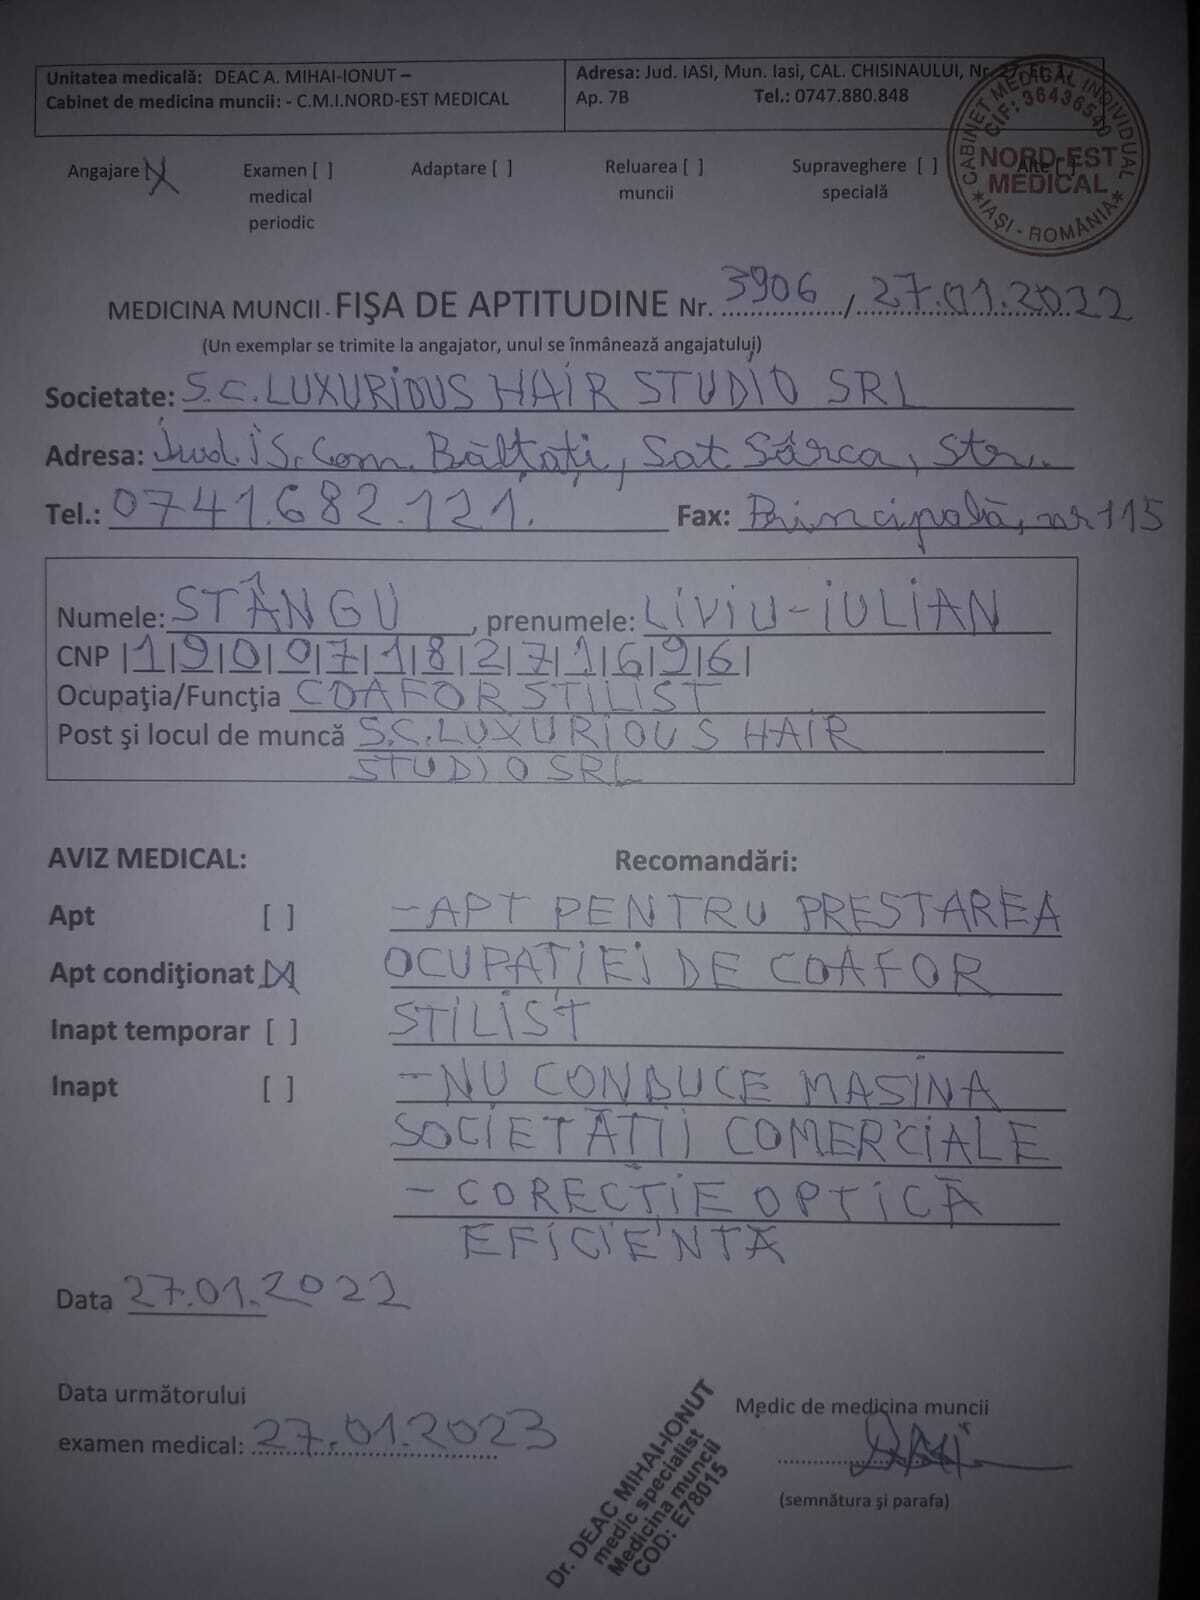 Unitatea medicală: DEAC A. MIHAI-IONUT –
Cabinet de medicina muncii: - C.M.I.NORD-EST MEDICAL
Adresa: Jud. IASI, Mun. Iasi, CAL. CHISINAULUI, Nr.
Ap. 7B Tel.: 0747.880.848
CABINET MEDICAL INDIVIDUAL
CIF: 36436540
NORD-EST
MEDICAL
*IAȘI - ROMÂNIA*
Angajare [X] Examen [ ] Adaptare [ ] Reluarea [ ] Supraveghere [ ] Alte [ ]
medical muncii specială
periodic
MEDICINA MUNCII - FIŞA DE APTITUDINE Nr. 3906 / 27.01.2022
(Un exemplar se trimite la angajator, unul se înmânează angajatului)
Societate: S.C. LUXURIOUS HAIR STUDIO SRL
Adresa: Jud. IS, Com. Bălțați, Sat Sârca, Str.
Tel.: 0741.682.121. Fax: Principală, nr 115
Numele: STÂNGU, prenumele: LIVIU-IULIAN
CNP |1|9|0|0|7|1|8|2|7|1|6|9|6|
Ocupaţia/Funcţia COAFOR STILIST
Post şi locul de muncă S.C. LUXURIOUS HAIR
STUDIO SRL
AVIZ MEDICAL: Recomandări:
Apt [ ] - APT PENTRU PRESTAREA
Apt condiţionat [X] OCUPAȚIEI DE COAFOR
Inapt temporar [ ] STILIST
Inapt [ ] - NU CONDUCE MASINA
SOCIETĂȚII COMERCIALE
- CORECȚIE OPTICĂ
EFICIENTĂ
Data 27.01.2022
Data următorului
examen medical: 27.01.2023
Dr. DEAC MIHAI-IONUT
medic specialist
Medicina muncii
COD: E78015
Medic de medicina muncii
(semnătura şi parafa)